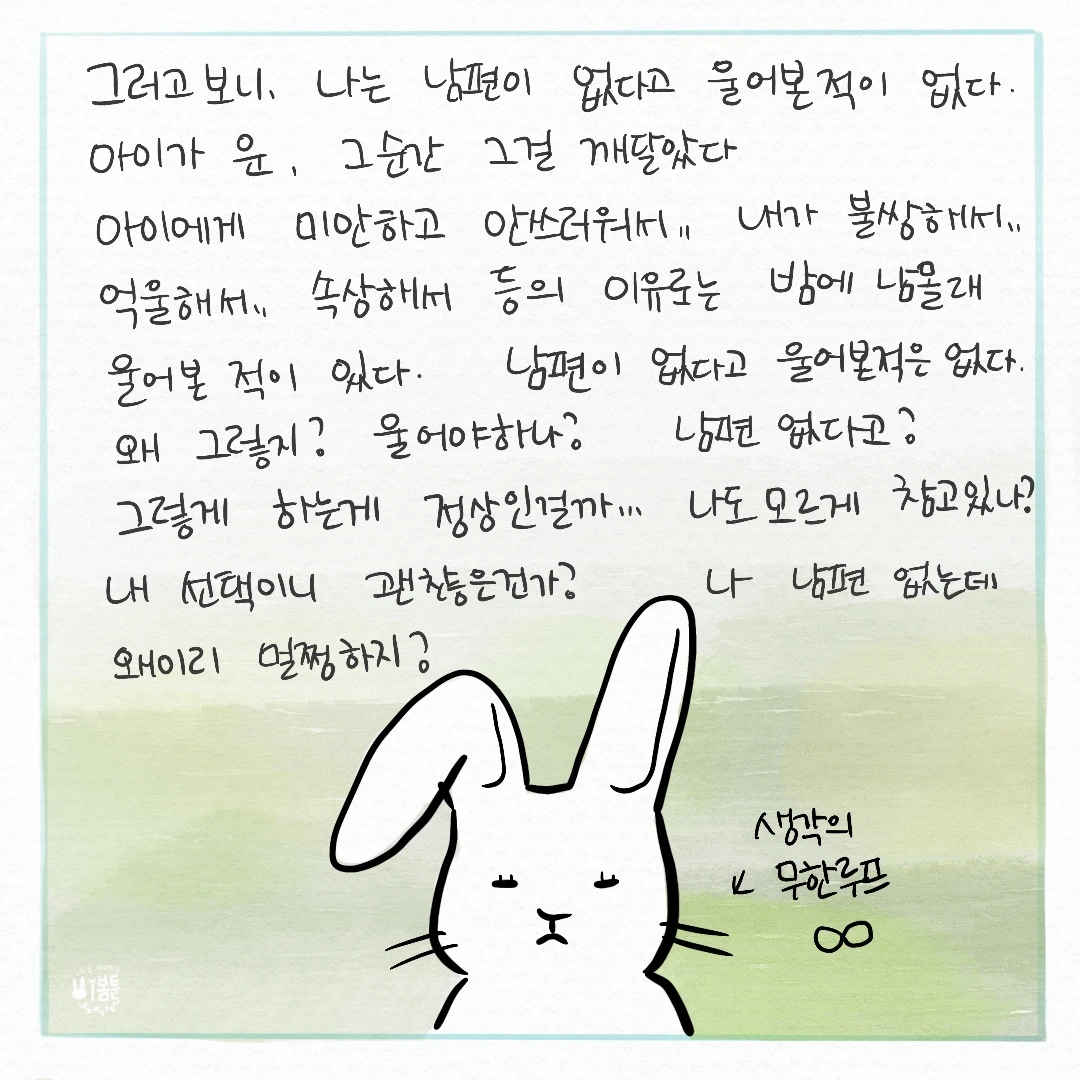 그러고보니, 나는 남편이 없다고 울어본적이 없다.
아이가 운, 그순간 그걸 깨달았다
아이에게 미안하고 안쓰러워서,, 내가 불쌍해서,,
억울해서,, 속상해서 등의 이유로는 밤에 남몰래
울어본 적이 있다. 남편이 없다고 울어본적은 없다.
왜 그렇지? 울어야하나? 남편 없다고?
그렇게 하는게 정상인걸까... 나도모르게 참고있나?
내 선택이니 괜찮은건가? 나 남편 없는데
왜이리 멀쩡하지?
생각의
↙ 무한루프
∞